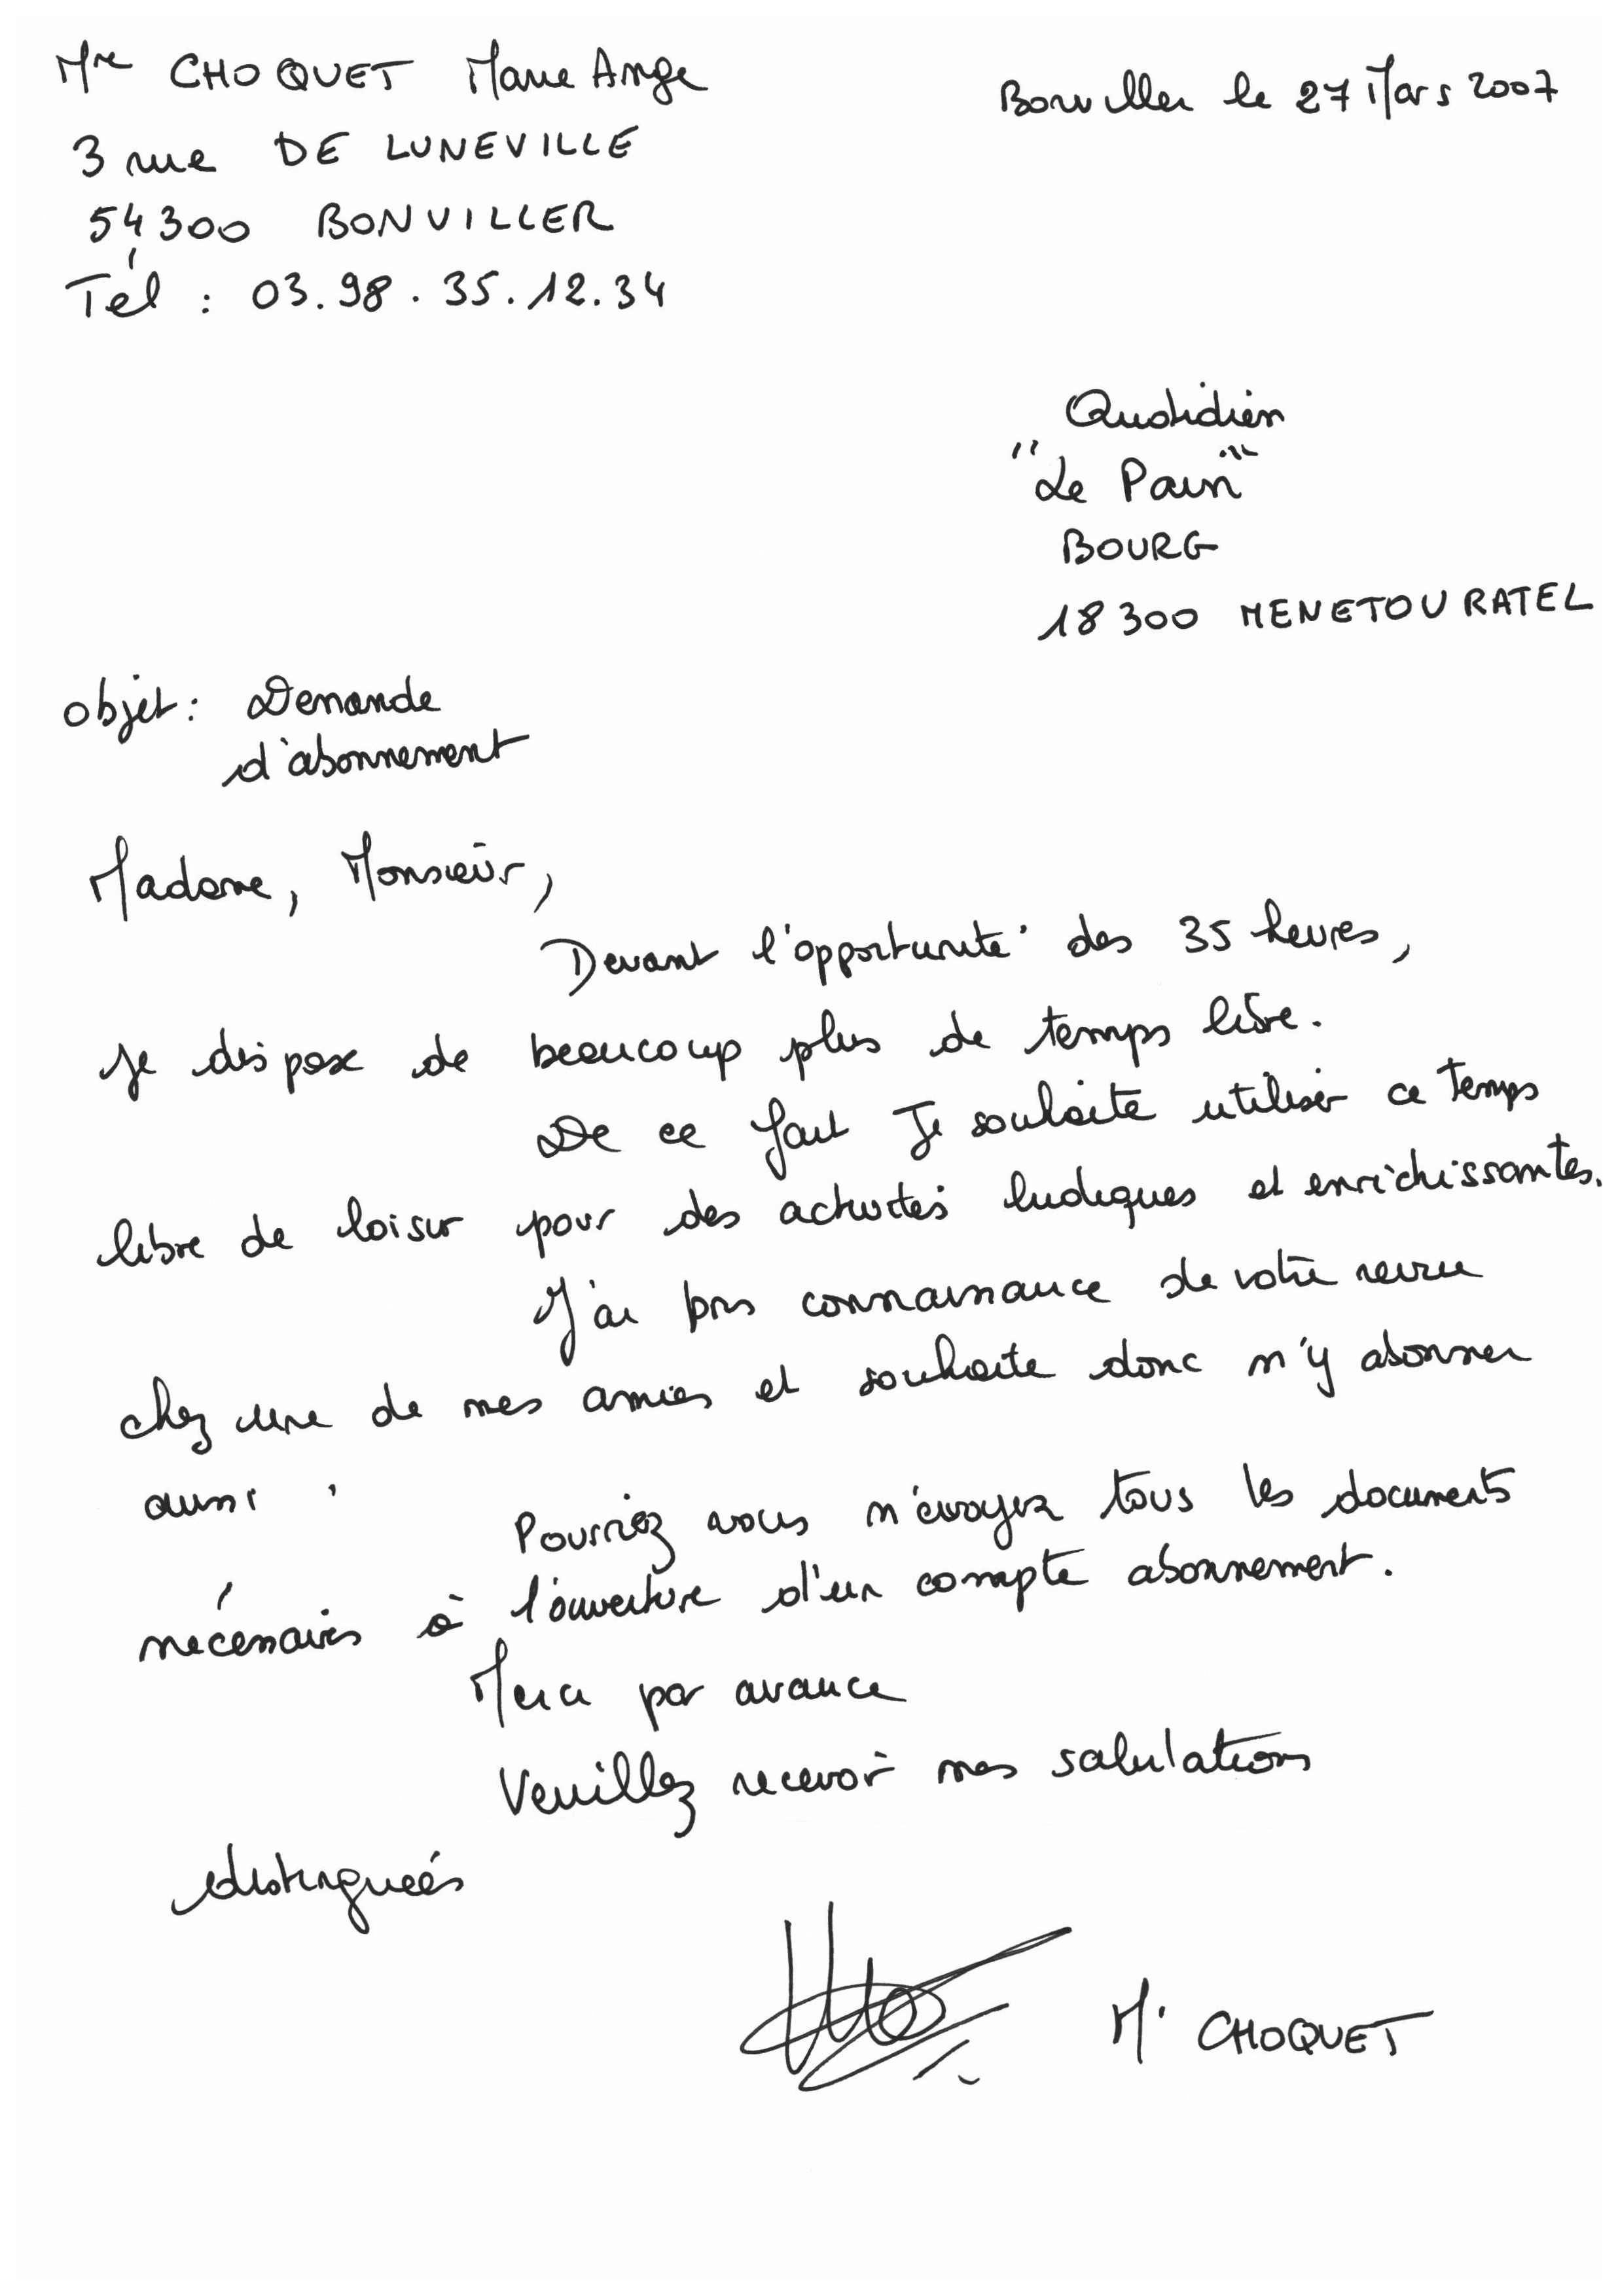 Mme CHOQUET Marie Ange
3 rue DE LUNEVILLE
54300 BONVILLER
Tél : 03.98.35.12.34
Bonviller le 27 Mars 2007
Quotidien
"Le Pain"
BOURG
18300 MENETOU RATEL
objet : Demande
d'abonnement
Madame, Monsieur,
Devant l'opportunité des 35 heures,
je dispose de beaucoup plus de temps libre.
De ce fait Je souhaite utiliser ce temps
libre de loisir pour des activités ludiques et enrichissantes.
J'ai pris connaissance de votre revue
chez une de mes amies et souhaite donc m'y abonner
aussi.
Pourriez vous m'envoyez tous les documents
nécessaires à l'ouverture d'un compte abonnement.
Merci par avance
Veuillez recevoir mes salutations
distinguées
M. CHOQUET